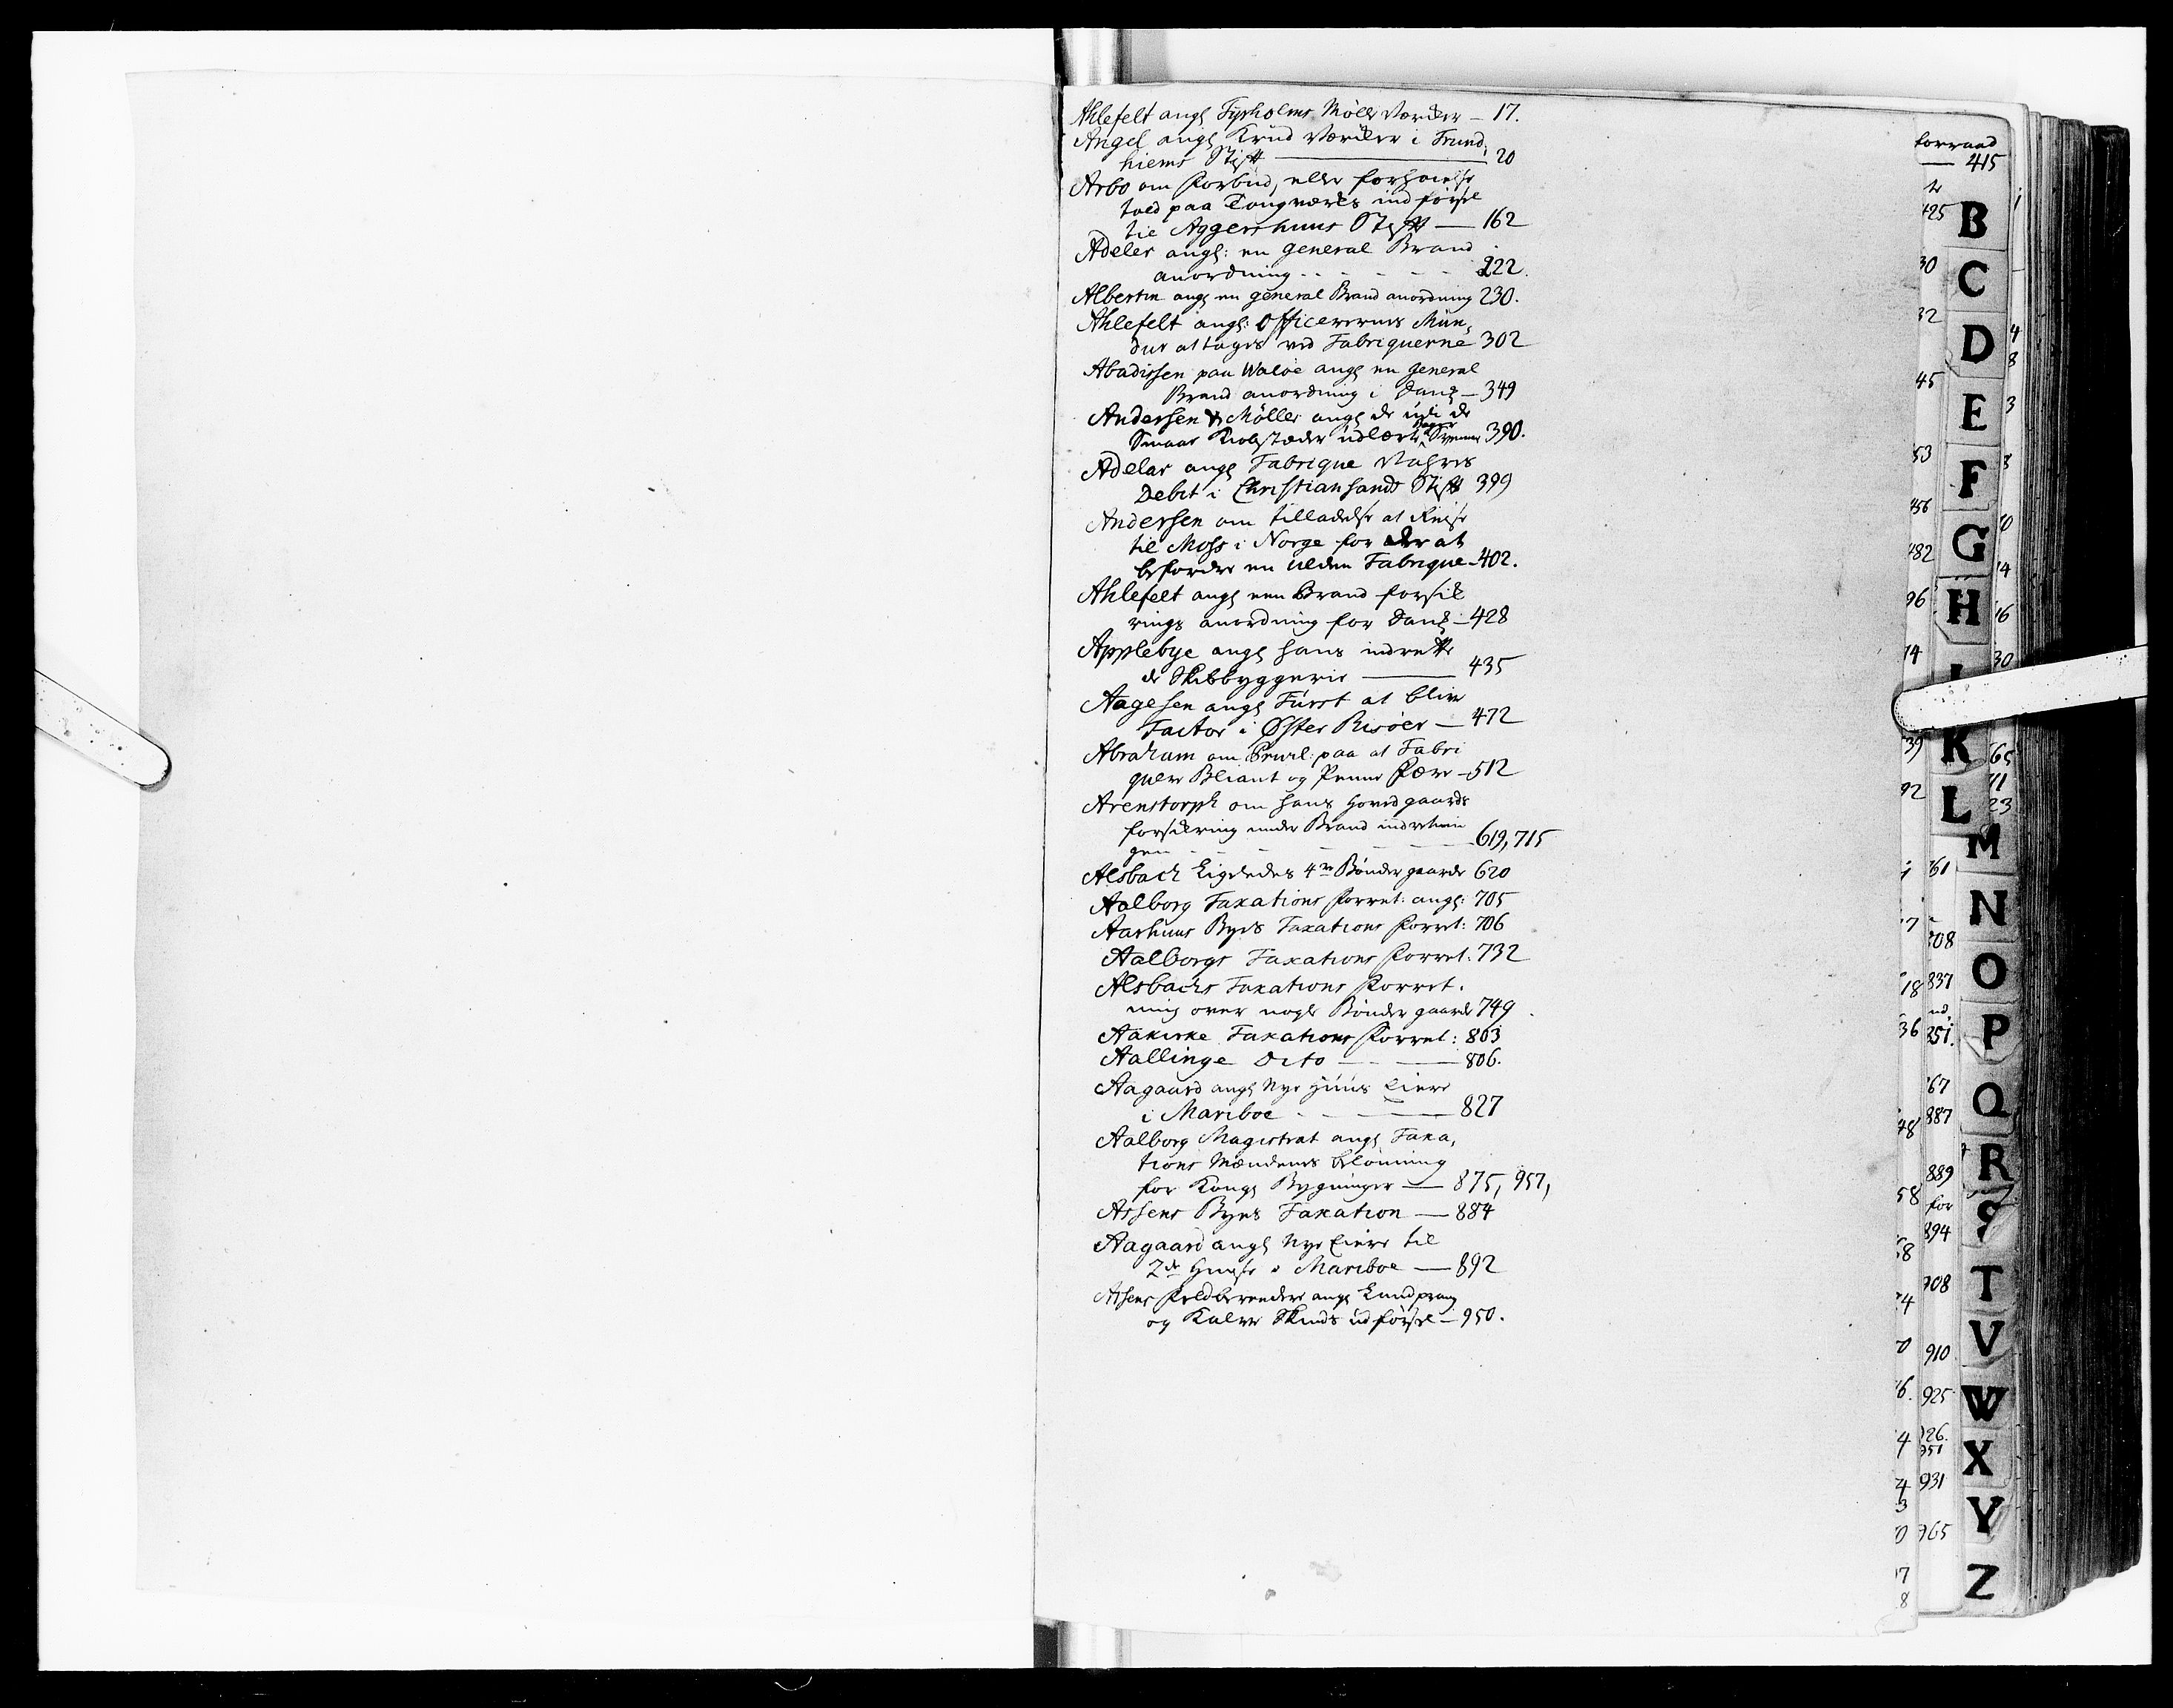 Ahlefelt angl Tyrholms Mølle Værker – 17.
Angel angl Krud Værker i Trund,
hiems Stift — 20
Arbo om Forbud, eller forhøielse
told paa Tougværks indførsel
til Aggershuus Stift — 162
Adeler angl: en general Brand
anordning - - - - - 222.
Albertin angl en general Brand anordning 230.
Ahlefelt angl: Officerernes Mun,
dur at tages ved Fabriquerne 302
Abadissen paa Waløe angl en general
Brand anordning i Danl – 349
Andersen & Møller angl de udi de
Smaae Kiøbstæder udlærte Svenne 390.
Adelar angl Fabrique Vahres
Debit i Christiansands Stift 399
Andersen om tilladelse at Reise
til Moss i Norge for der at
befordre en ulden Fabrique – 402.
Ahlefelt angl een Brand forsik
rings anordning for Danl – 428
Applebye angl hans indrette
de Skibbyggerie — 435
Aagesen angl Furst at blive
Factor i Øster Risøer — 472
Abraham om Privil: paa at Fabri
quere Bleiant og Penne Pære – 512
Arenstorph om hans Hovedgaards
forsikring under Brand indretnin
gen - - - - - 619, 715
Alsbach Ligeledes 4re Bønder gaarde 620
Aalborg Taxations Forret: angl: 705
Aarhuus Byes Taxations Forret: 706
Aalborgs Taxations Forret: 732
Alsbachs Taxations Forret.
ning over nogle Bønder gaarde 749.
Aakirke Taxations Forret: 803
Aallinge Dito — 806.
Aagaard angl Nye Huus Eiere
i Mariboe — 827
Aalborg Magistrat angl Taxa,
tions Mændenes belønning
for Kongl Bygninger — 875, 957,
Assens Byes Taxation — 884
Aagaard angl Nye Eiere til
2de Huuse i Mariboe — 892
Assens Feldberedere angl Landprang
og Kalve Skinds udførsel – 950.
forraad
415
425
30
32
45
53
456
482
96
74
39
92
861
808
837
851.
867
887
889
for
894
908
910
925
926.
951
931
965
B
C
D
E
F
G
H
K
L
M
N
O
P
Q
R
S
T
V
W
X
Y
Z